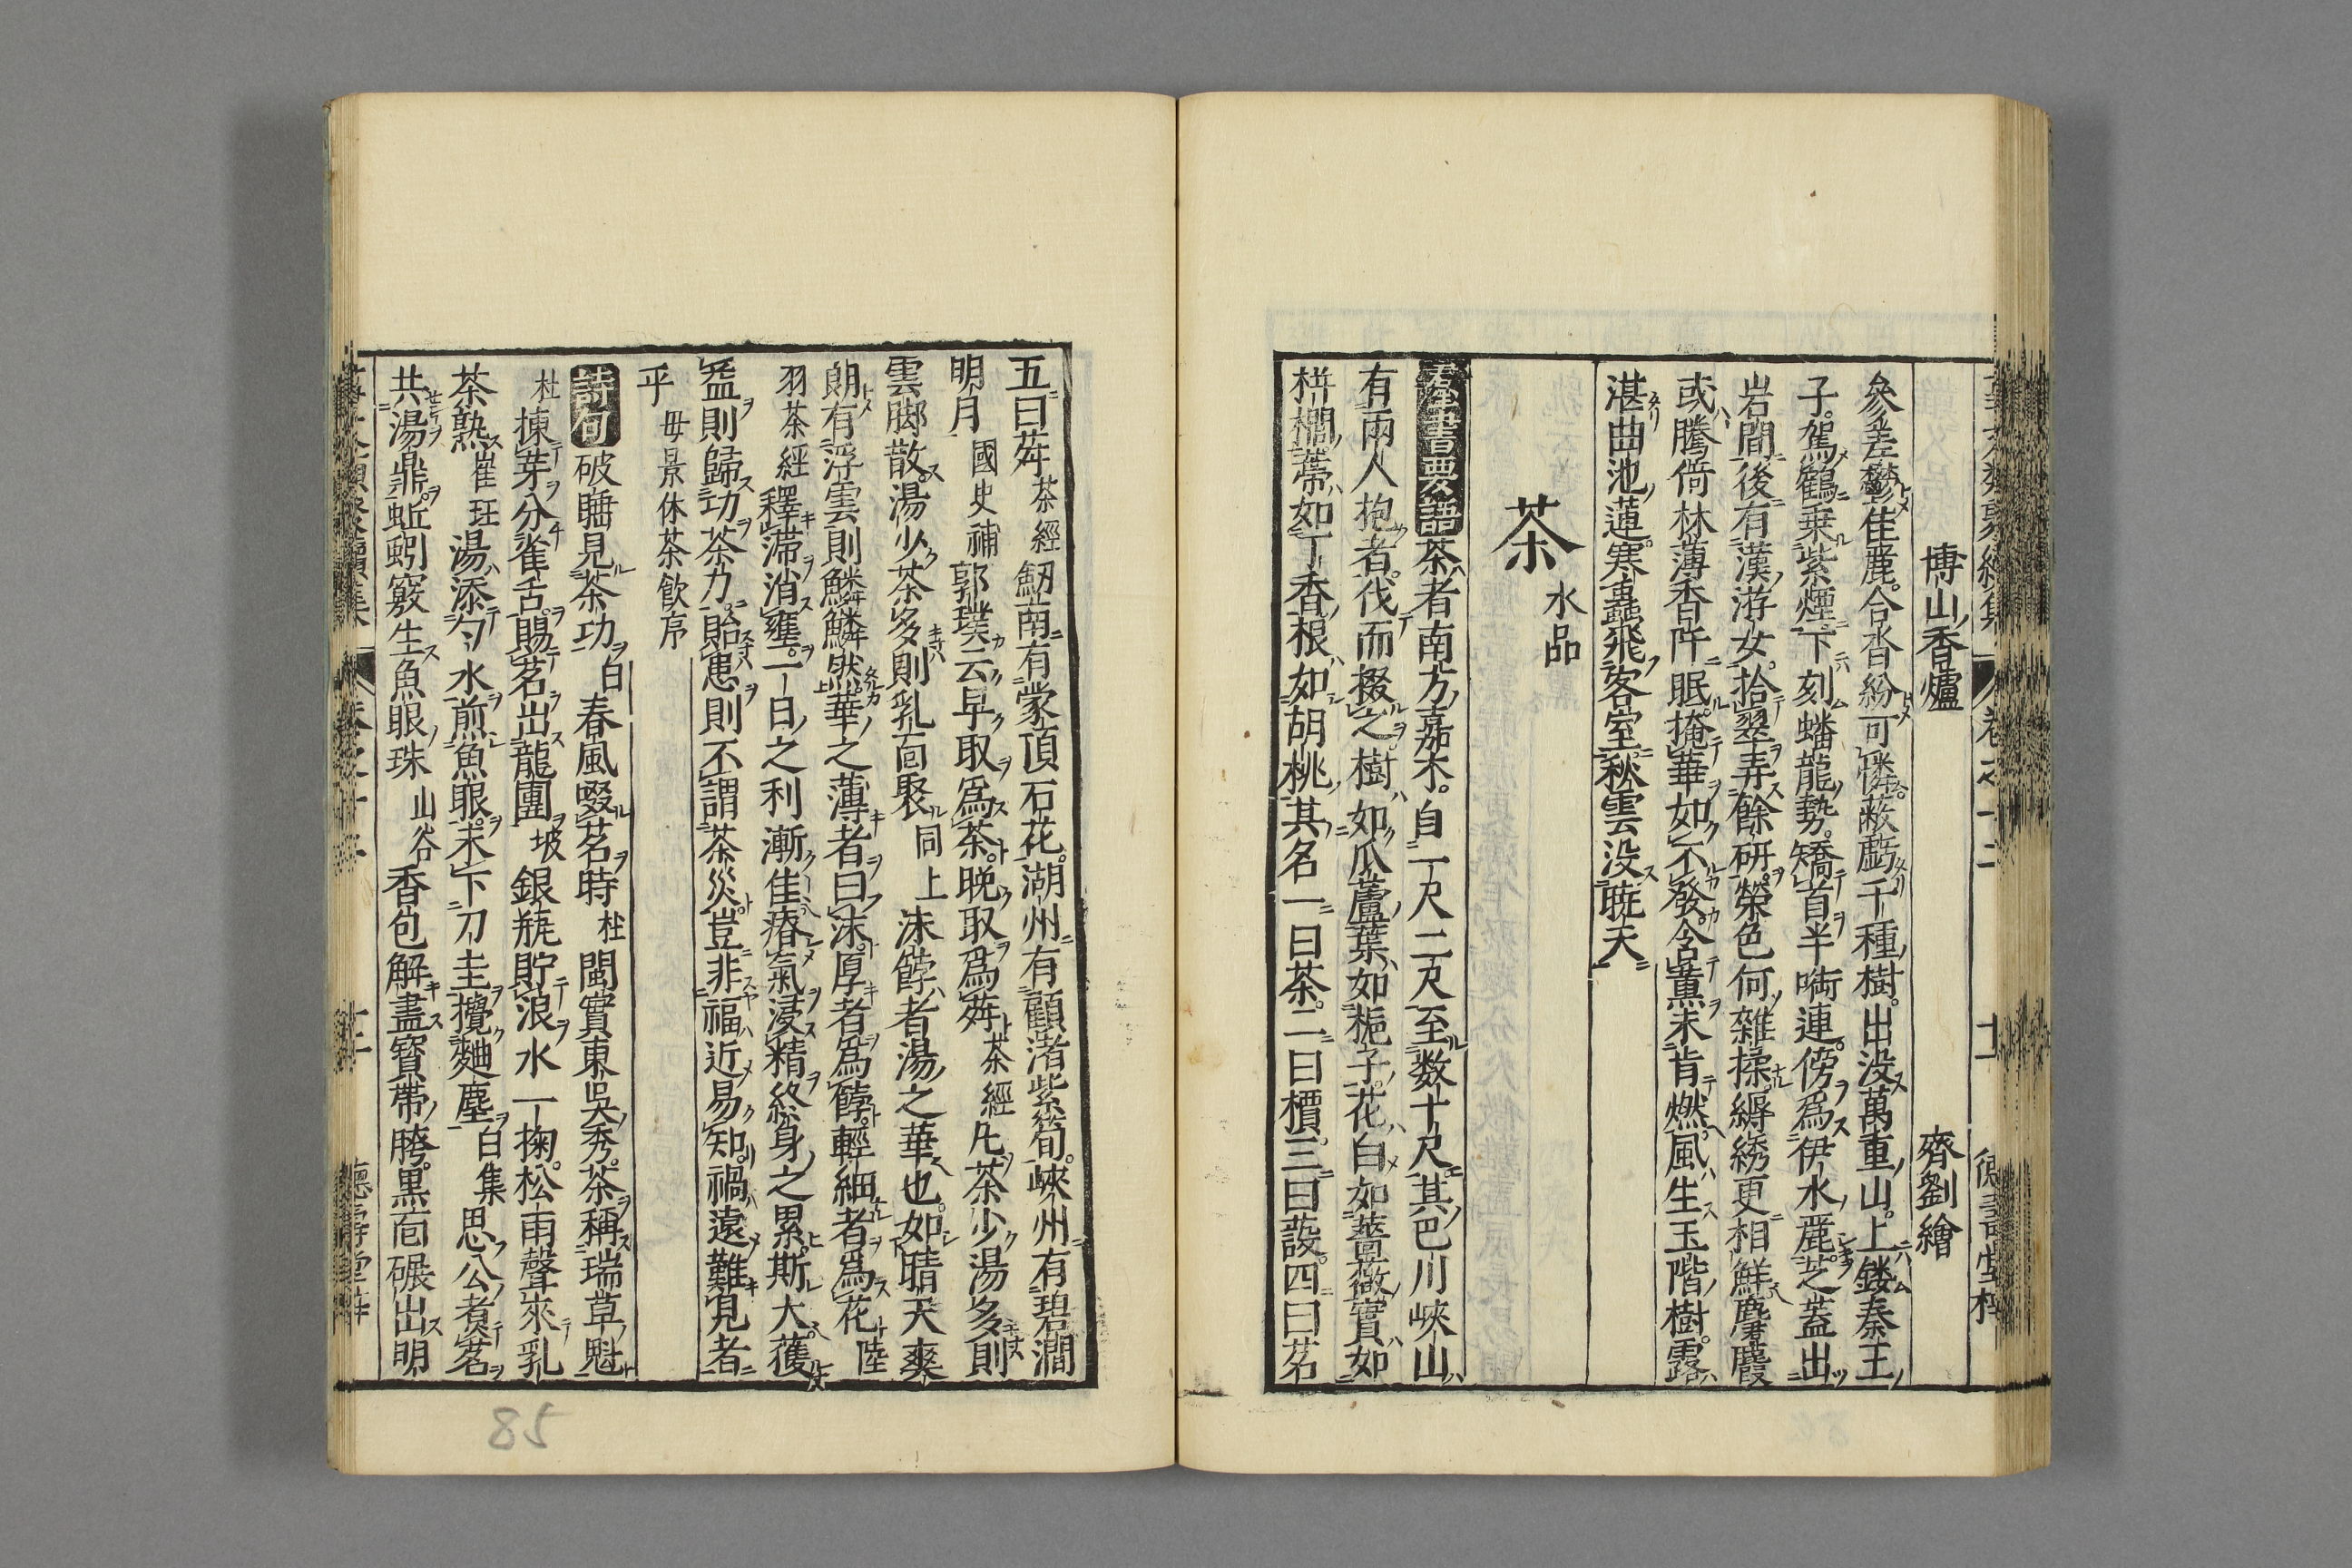 博山香爐 齊劉繪
參差鬱佳麗。合沓紛可憐。蔽虧千種樹。出没萬重山。上鏤秦王
子。駕鶴乗紫煙。下刻蟠龍勢。矯首半啣連。傍爲伊水麗。芝蓋出
岩間。後有漢游女。拾翠弄餘研。榮色何雜揉。縟綉更相鮮。麏麚
或騰倚。林薄香阡眠。掩華如不發。含薫未肯燃。風生玉階樹。露
湛曲池蓮。寒蟲飛客室。秋雲没暁天
茶 水品
羣書要語 茶者南方嘉木。自一尺二尺至数十尺。其巴川峽山
有兩人抱者。伐而掇之。樹如瓜蘆。葉如梔子。花白如薔薇。實如
栟櫚。蔕如丁香。根如胡桃。其名一曰茶。二曰檟。三曰蔎。四曰茗
五曰荈 茶經 劒南有蒙頂石花。湖州有顧渚紫筍。峽州有碧澗
明月 國史補 郭璞云早取爲茶。晚取爲荈 茶經 凡茶少湯多則
雲脚散。湯少茶多則乳面聚 同上 沫餑者湯之華也。如晴天爽
朗有浮雲則鱗鱗然。華之薄者曰沫。厚者爲餑。輕細者爲花 陸
羽茶經 釋滯消壅。一日之利漸佳。瘠氣浸精終身之累斯大。獲
益則歸功茶力。貽患則不謂茶災。豈非福近易知。禍遠難見者
乎 毋景休茶飲序
詩句 破睡見茶功 白 春風啜茗時 杜 閩實東吳秀。茶稱瑞草魁
杜 揀芽分雀舌。賜茗出龍團 坡 銀瓶貯浪水一掬。松雨聲來乳
茶熟 崔珏 湯添勺水煎魚眼。末下刀圭攪麯塵 白集 思公煮茗
共湯鼎。蚯蚓竅生魚眼珠 山谷 香包解盡寳帶胯。黒面碾出明
85